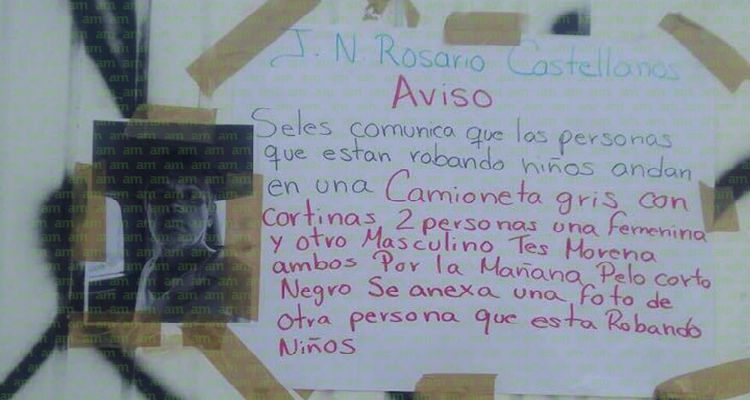 J. N Rosario Castellanos
Aviso
Seles comunica que las personas
que estan robando niños andan
en una Camioneta gris con
cortinas 2 personas una femenina
y otro Masculino Tes Morena
ambos Por la Mañana Pelo corto
Negro Se anexa una foto de
otra persona que esta Robando
Niños